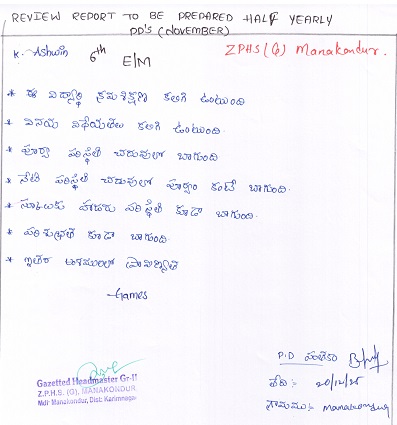 REVIEW REPORT TO BE PREPARED HALF YEARLY
PD'S (NOVEMBER)
K. Ashwin 6th E/M ZPHS (G) Manakondur.
* ఈ విద్యార్థి క్రమశిక్షణ కలిగి ఉంటుంది
* వినయ విధేయతలు కలిగి ఉంటుంది.
* పూర్వ పరిస్థితి చదువులో బాగుంది
* నేటి పరిస్థితి చదువులో పూర్వం కంటే బాగుంది.
* స్కూలుకు హాజరు పరిస్థితి కూడా బాగుంది.
* పరిశుభ్రత కూడా బాగుంది.
* ఇతర అంశములలో ప్రావీణ్యత
Games
Gazetted Headmaster Gr-II
Z.P.H.S. (G), MANAKONDUR.
Mdl: Manakondur, Dist: Karimnagar
P.D సంతకం
తేది:-
గ్రామము:- Manakondur